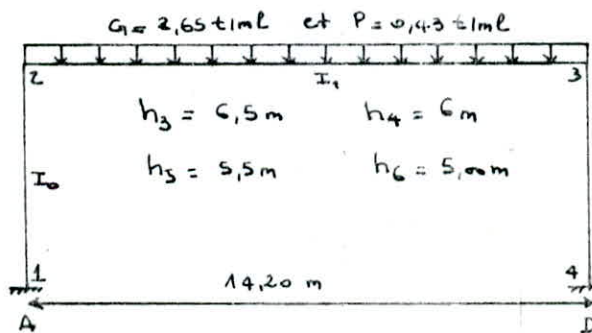 G = 2,65 t/ml et P = 0,43 t/ml
2 I₁ 3
h₃ = 6,5 m h₄ = 6 m
I₀ h₅ = 5,5 m h₆ = 5,00 m
1 14,20 m 4
A D